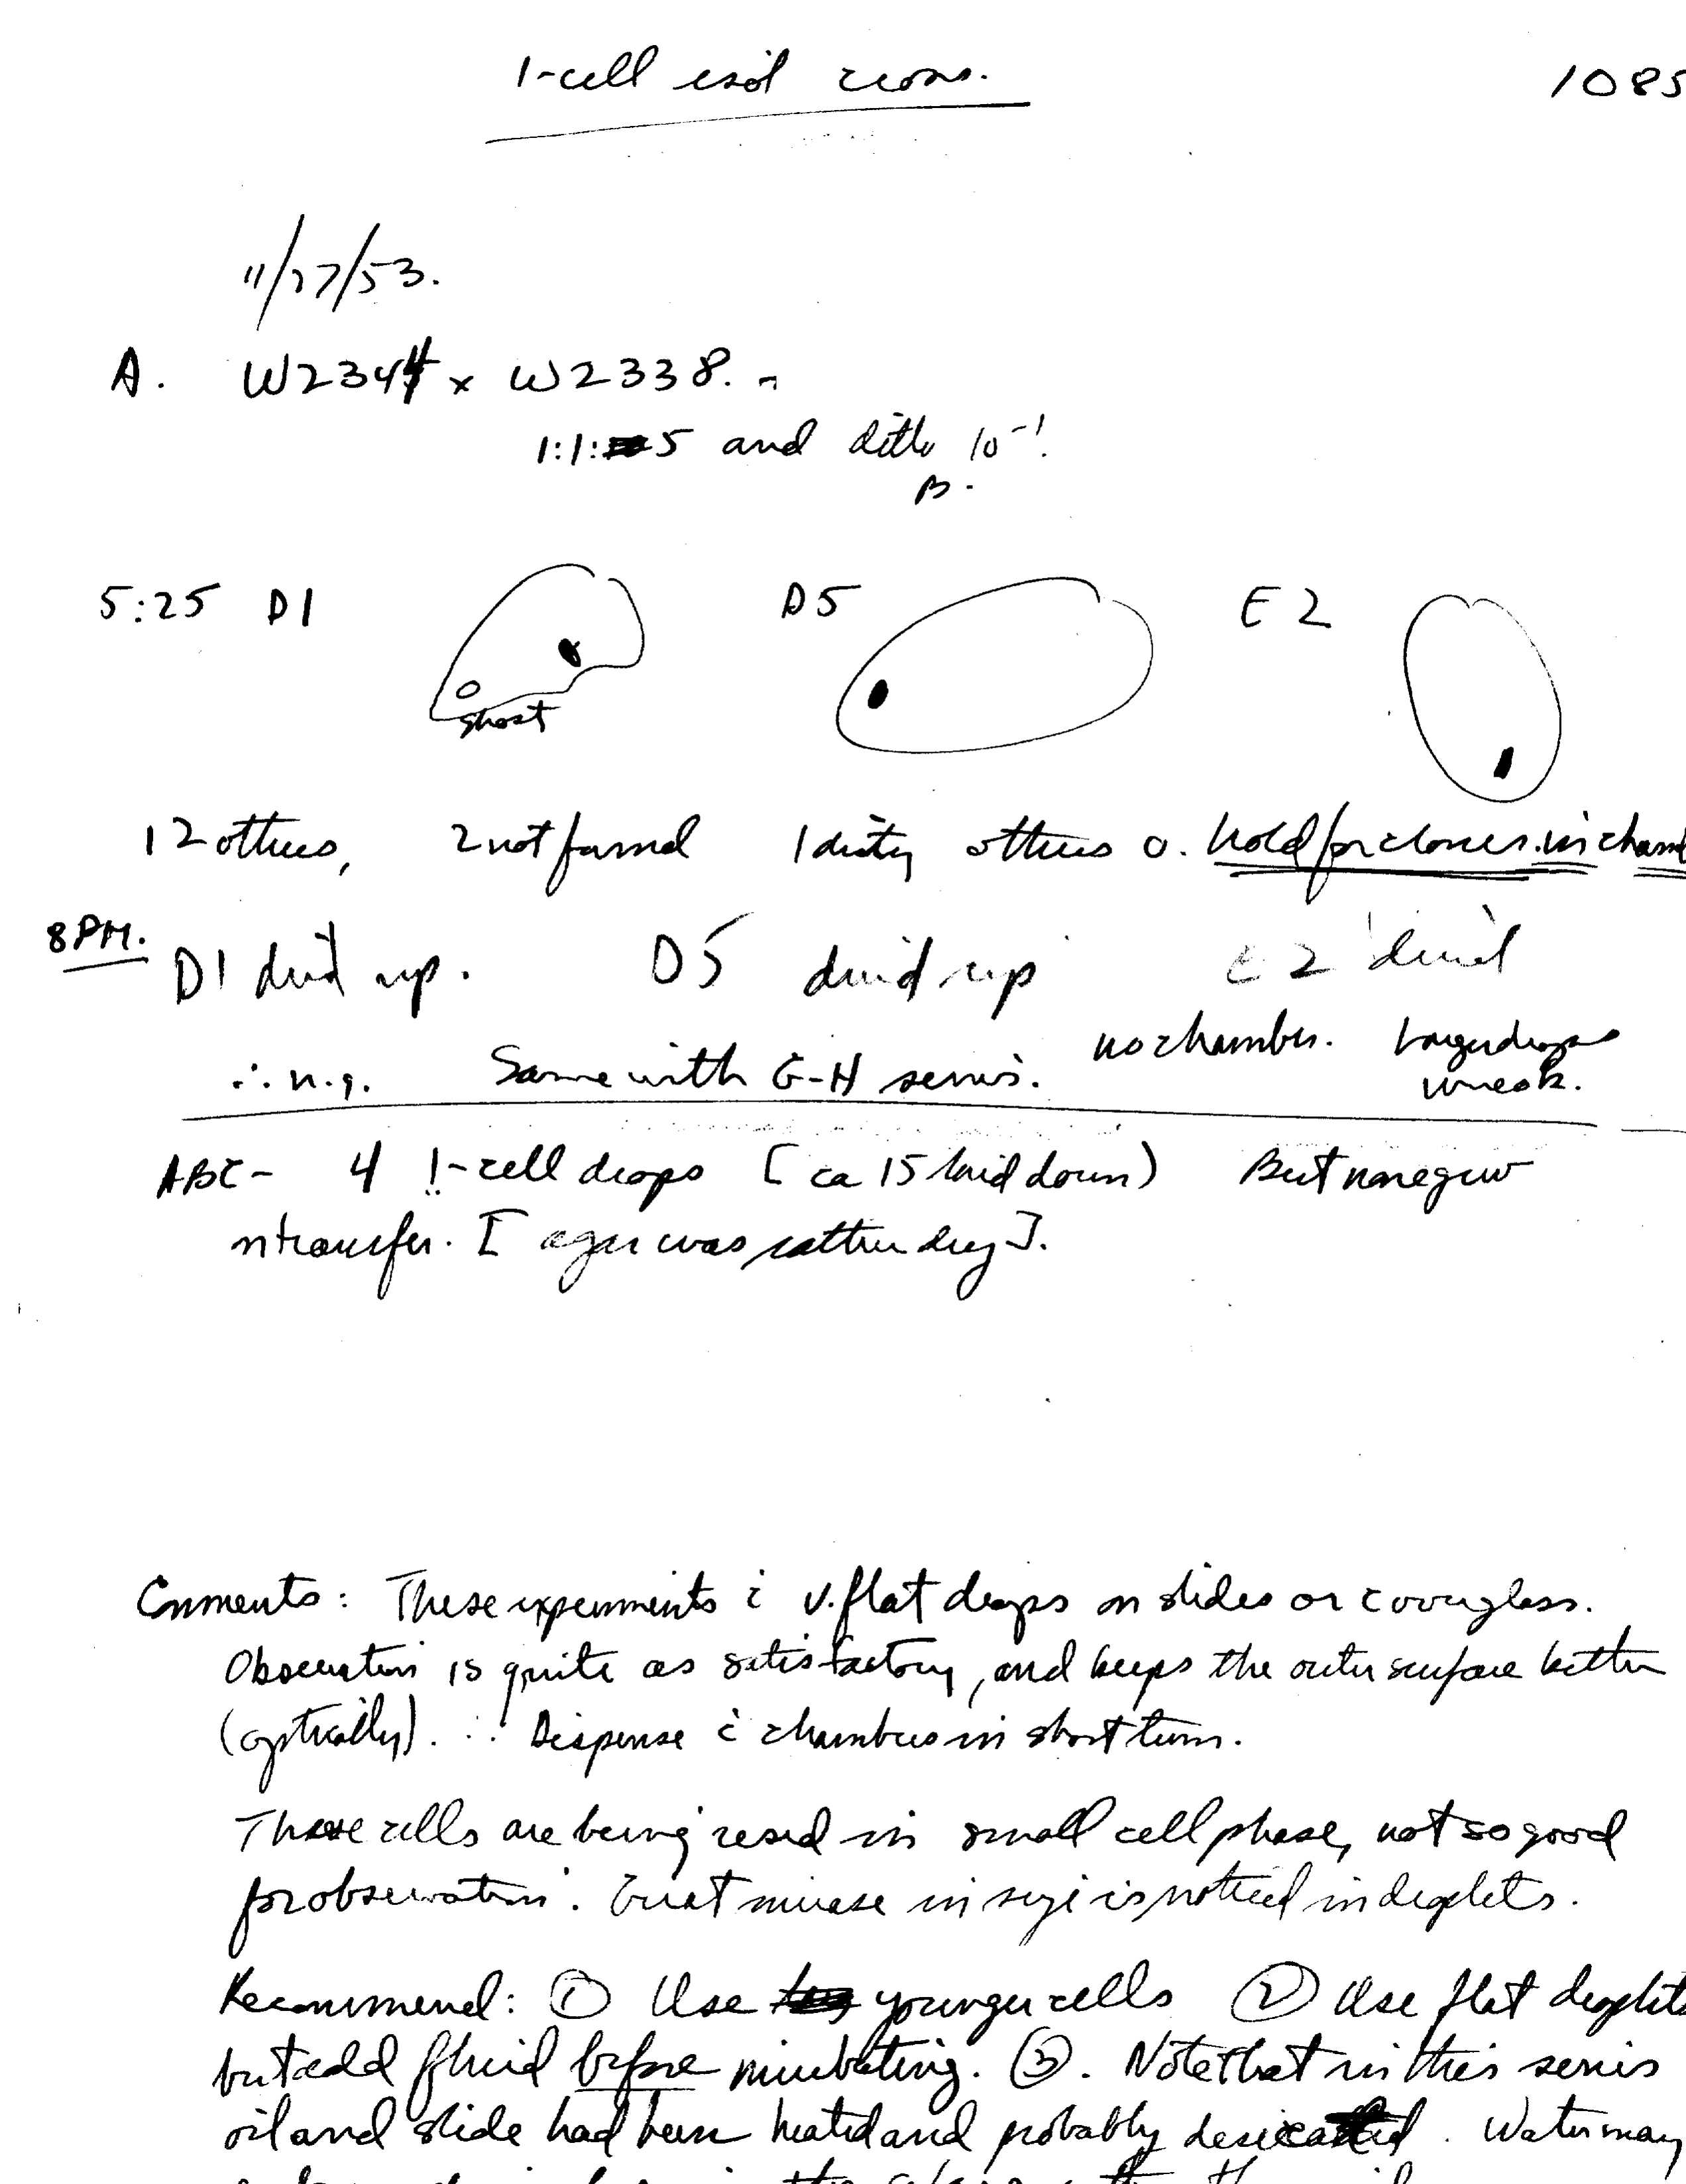 1-cell isol crosses.
1085
11/27/53.
A. W2344 x W2338.
1:1:5 and ditto 10⁻¹.
B.
5:25 D1 D5 E2
ghost
12 others, 2 not found 1 dirty others 0. Hold for clones in cham
8PM.
D1 dried up. D5 dried up E2 dried
∴ n.g. Same with G-H series. no chamber. Larger drops
ABC- 4 !-cell drops [ca 15 laid down) But none grew
on transfer. [agar was rather dry].
Comments: These experiments c̄ v. flat drops on slides or coverglass.
Observation is quite as satisfactory, and keeps the outer surface better
(optically). ∴ Dispense c̄ chambers in short term.
These cells are being used in small cell phase, not so good
for observation. Great increase in size is noticed in droplets.
Recommend: ① Use younger cells ② Use flat droplets
but add fluid before incubating. ③. Note that in this series
oil and slide had been heated and probably desiccated. Water may